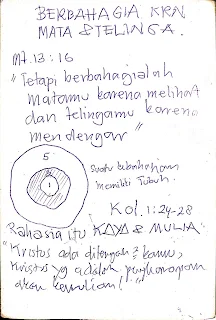 BERBAHAGIA KRN
MATA & TELINGA.
Mt. 13 : 16
"Tetapi berbahagialah
matamu karena melihat
dan telingamu karena
mendengar"
5
1
Suatu kebahagiaan
memiliki Tubuh.
Kol. 1:24-28
Rahasia itu KAYA & MULIA
"Kristus ada ditengah2 kamu,
Kristus yg adalah pengharapan
akan kemuliaan!"